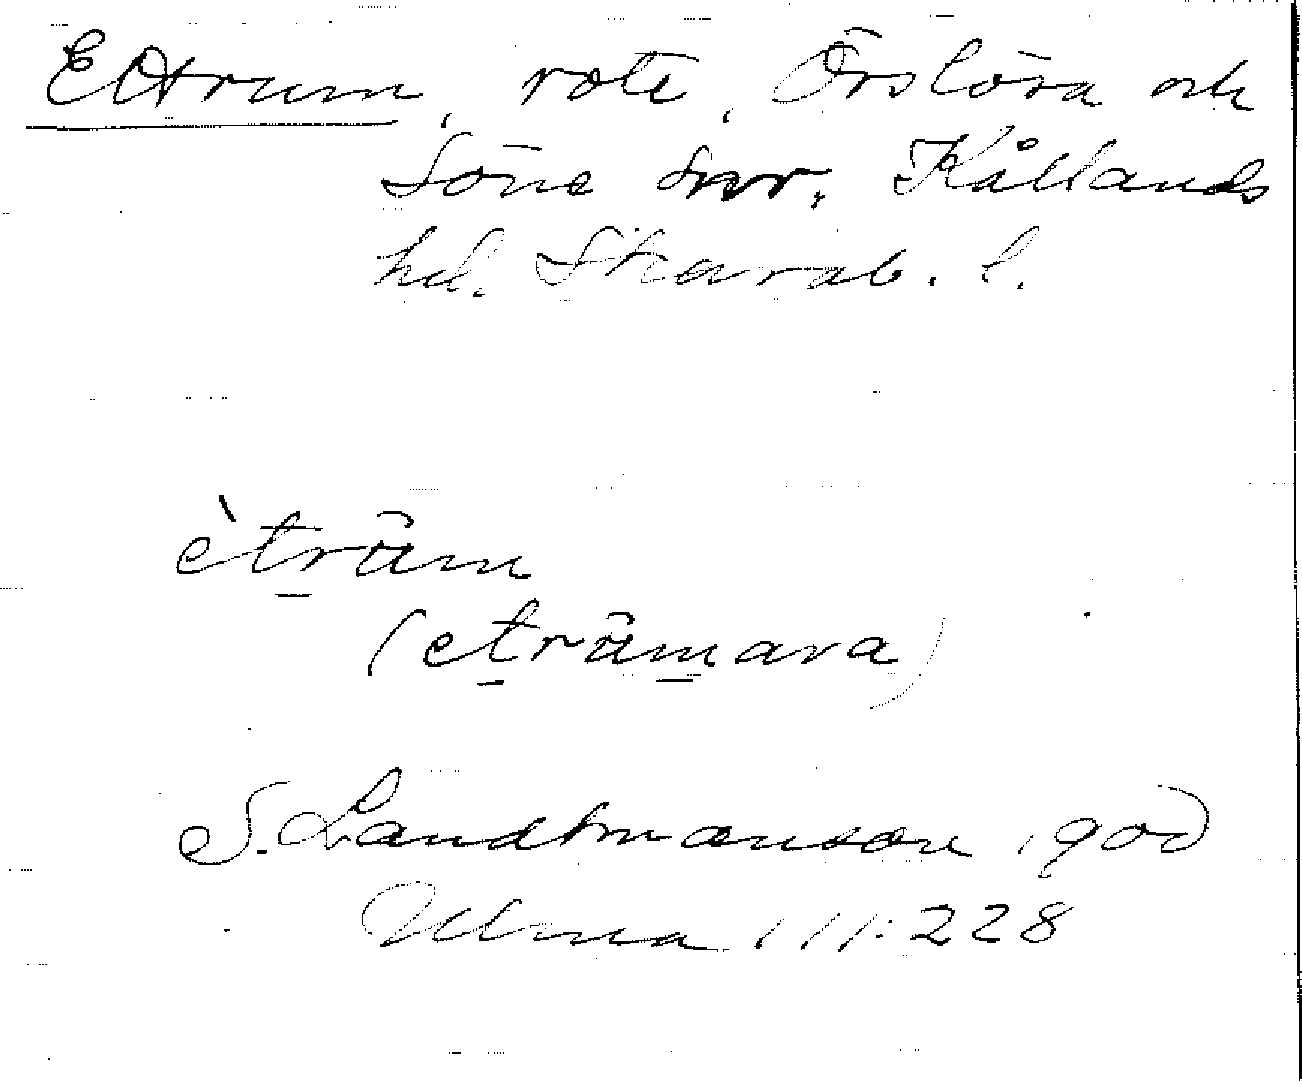 Ettrum, rote, Örslösa och
Söne snr. Kållands
hd. Skarab. l.
èträm
(eträmara)
S. Landtmanson 1900
Ulma 111:228